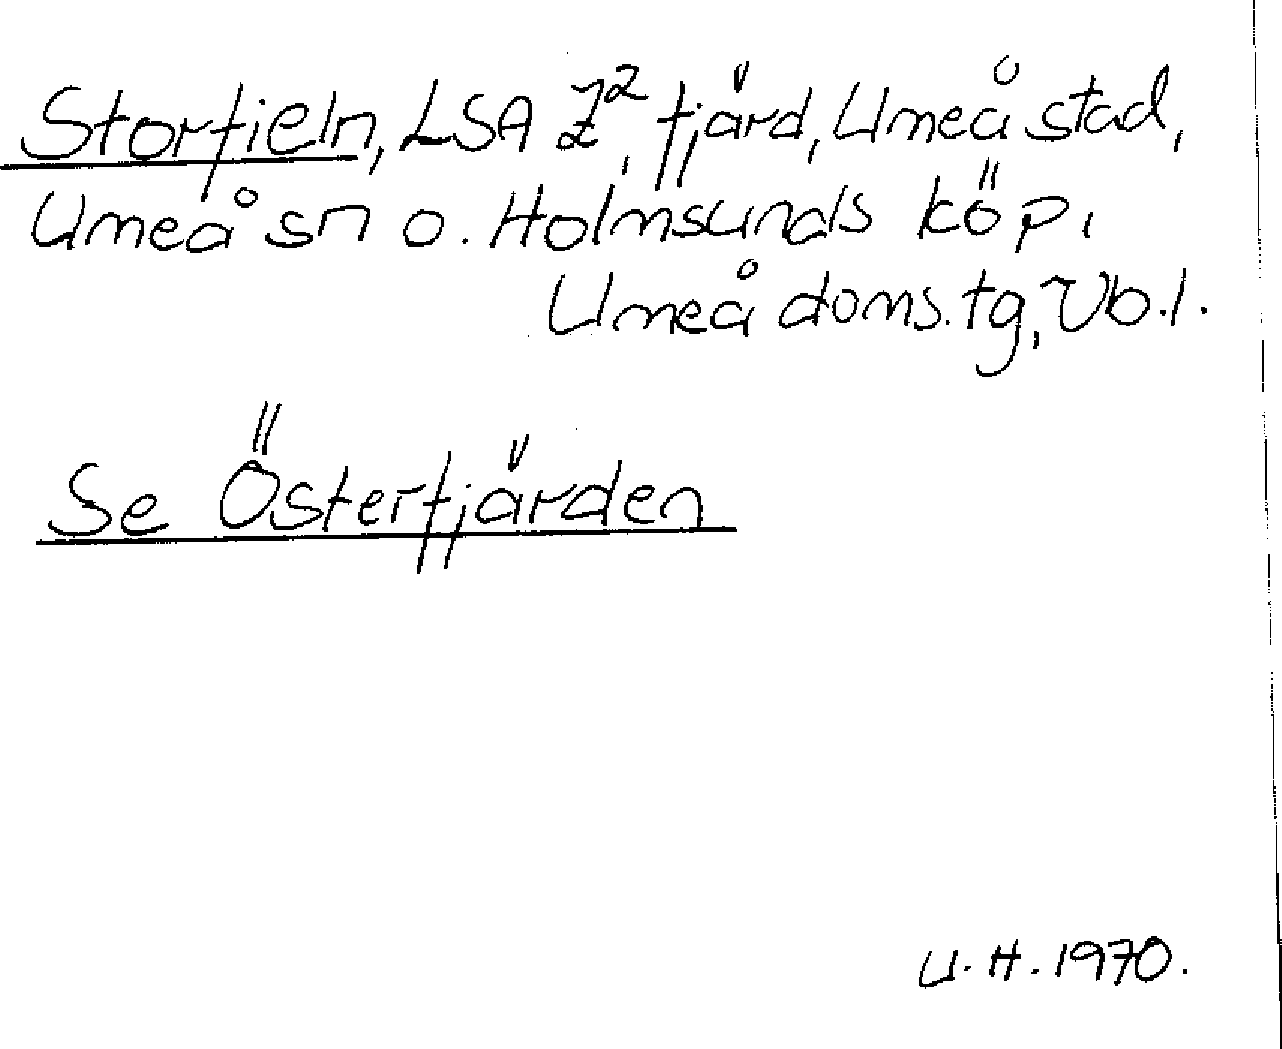 Storfieln, LSA Z², fjärd, Umeå stad,
Umeå sn o. Holmsunds köp,
Umeå doms.tg, Vb.l.
Se Österfjärden
U.H.1970.